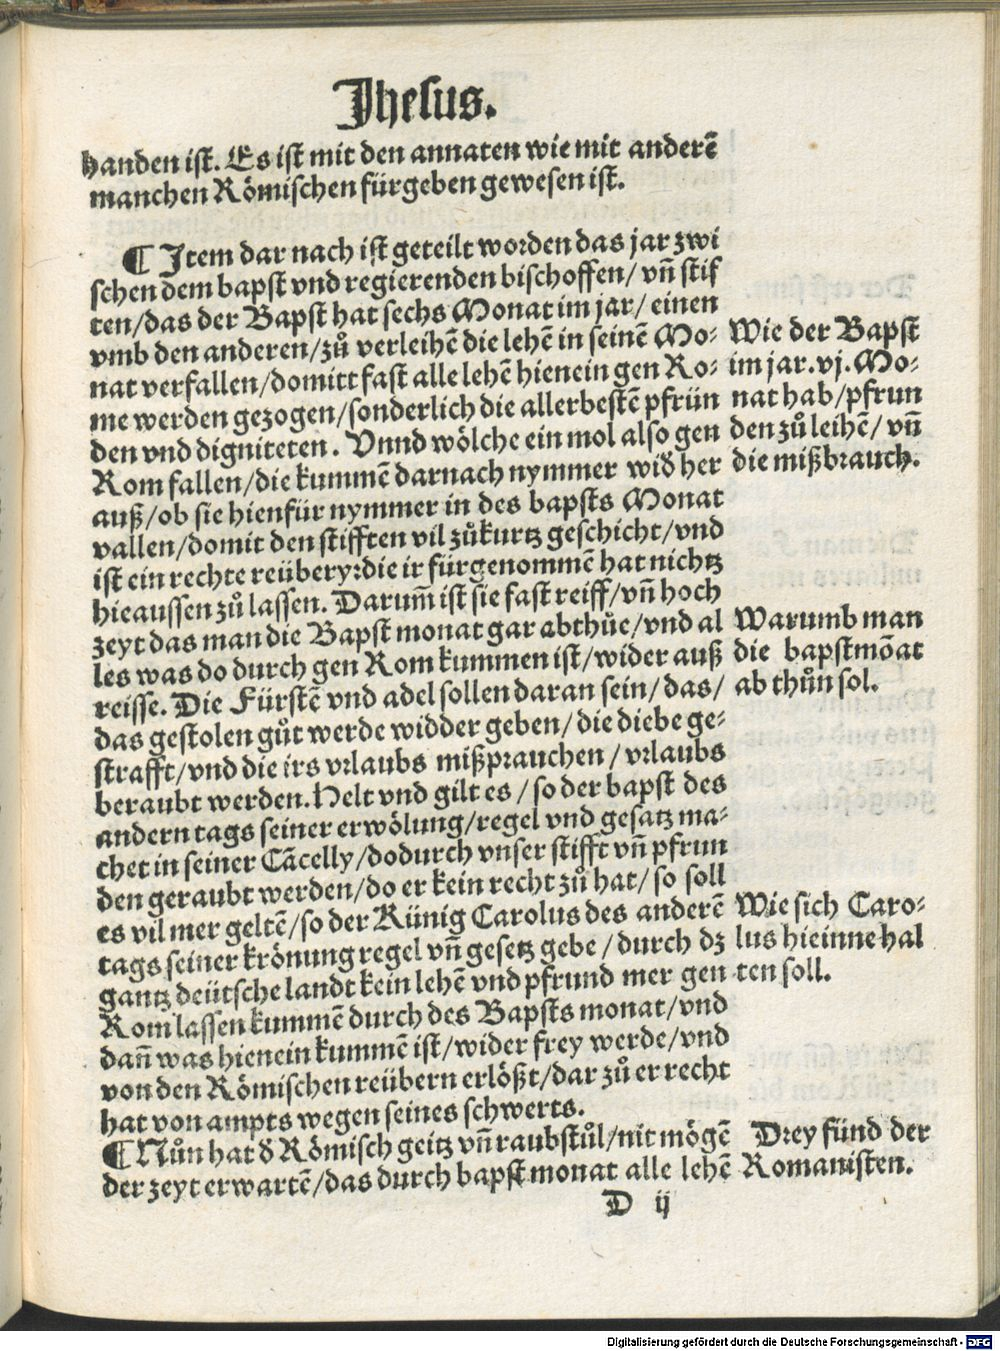 Jhesus.
handen ist. Es ist mit den annaten wie mit anderẽ
manchen Römischen fürgeben gewesen ist.
¶ Item dar nach ist geteilt worden das jar zwi
schen dem bapst vnd regierenden bischoffen/ vñ stif
ten/das der Bapst hat sechs Monat im jar/ einen
vmb den anderen/zů verleihẽ die lehẽ in seinẽ Mo-
nat verfallen/domitt fast alle lehẽ hienein gen Ro-
me werden gezogen/sonderlich die allerbestẽ pfrün
den vnd digniteten. Vnnd wölche ein mol also gen
Rom fallen/die kummẽ darnach nymmer wid̃ her
auß/ob sie hienfür nymmer in des bapsts Monat
vallen/domit den stifften vil zůkurtz geschicht/vnd
ist ein rechte reüberyːdie ir fürgenommẽ hat nichtz
hieaussen zů lassen. Darum̃ ist sie fast reiff/vñ hoch
zeyt das man die Bapst monat gar abthüe/vnd al
les was do durch gen Rom kummen ist/wider auß
reisse. Die Fürstẽ vnd adel sollen daran sein/das/
das gestolen gůt werde widder geben/die diebe ge-
strafft/vnd die irs vrlaubs mißprauchen/vrlaubs
beraubt werden. Helt vnd gilt es/so der bapst des
andern tags seiner erwölung/regel vnd gesatz ma-
chet in seiner Cãcelly/dodurch vnser stifft vñ pfrun
den geraubt werden/do er kein recht zů hat/so soll
es vil mer geltẽ/so der Künig Carolus des anderẽ
tags seiner krönung regel vñ gesetz gebe/durch dz
gantz deütsche landt kein lehẽ vnd pfrund mer gen
Rom lassen kummẽ durch des Bapsts monat/vnd
dañ was hienein kummẽ ist/wider frey werde/vnd
von den Römischen reübern erlößt/dar zů er recht
hat von ampts wegen seines schwerts.
¶ Nůn hat d̃ Römisch geitz vñ raubstůl/nit mögẽ
der zeyt erwartẽ/das durch bapst monat alle lehẽ
D ij
Wie der Bapst
im jar.vj.Mo-
nat hab/pfrun
den zů leihẽ/vñ
die mißbrauch.
Warumb man
die bapstmõat
ab thůn sol.
Wie sich Caro-
lus hieinne hal
ten soll.
Drey fünd der
Romanisten.
Digitalisierung gefördert durch die Deutsche Forschungsgemeinschaft - DFG